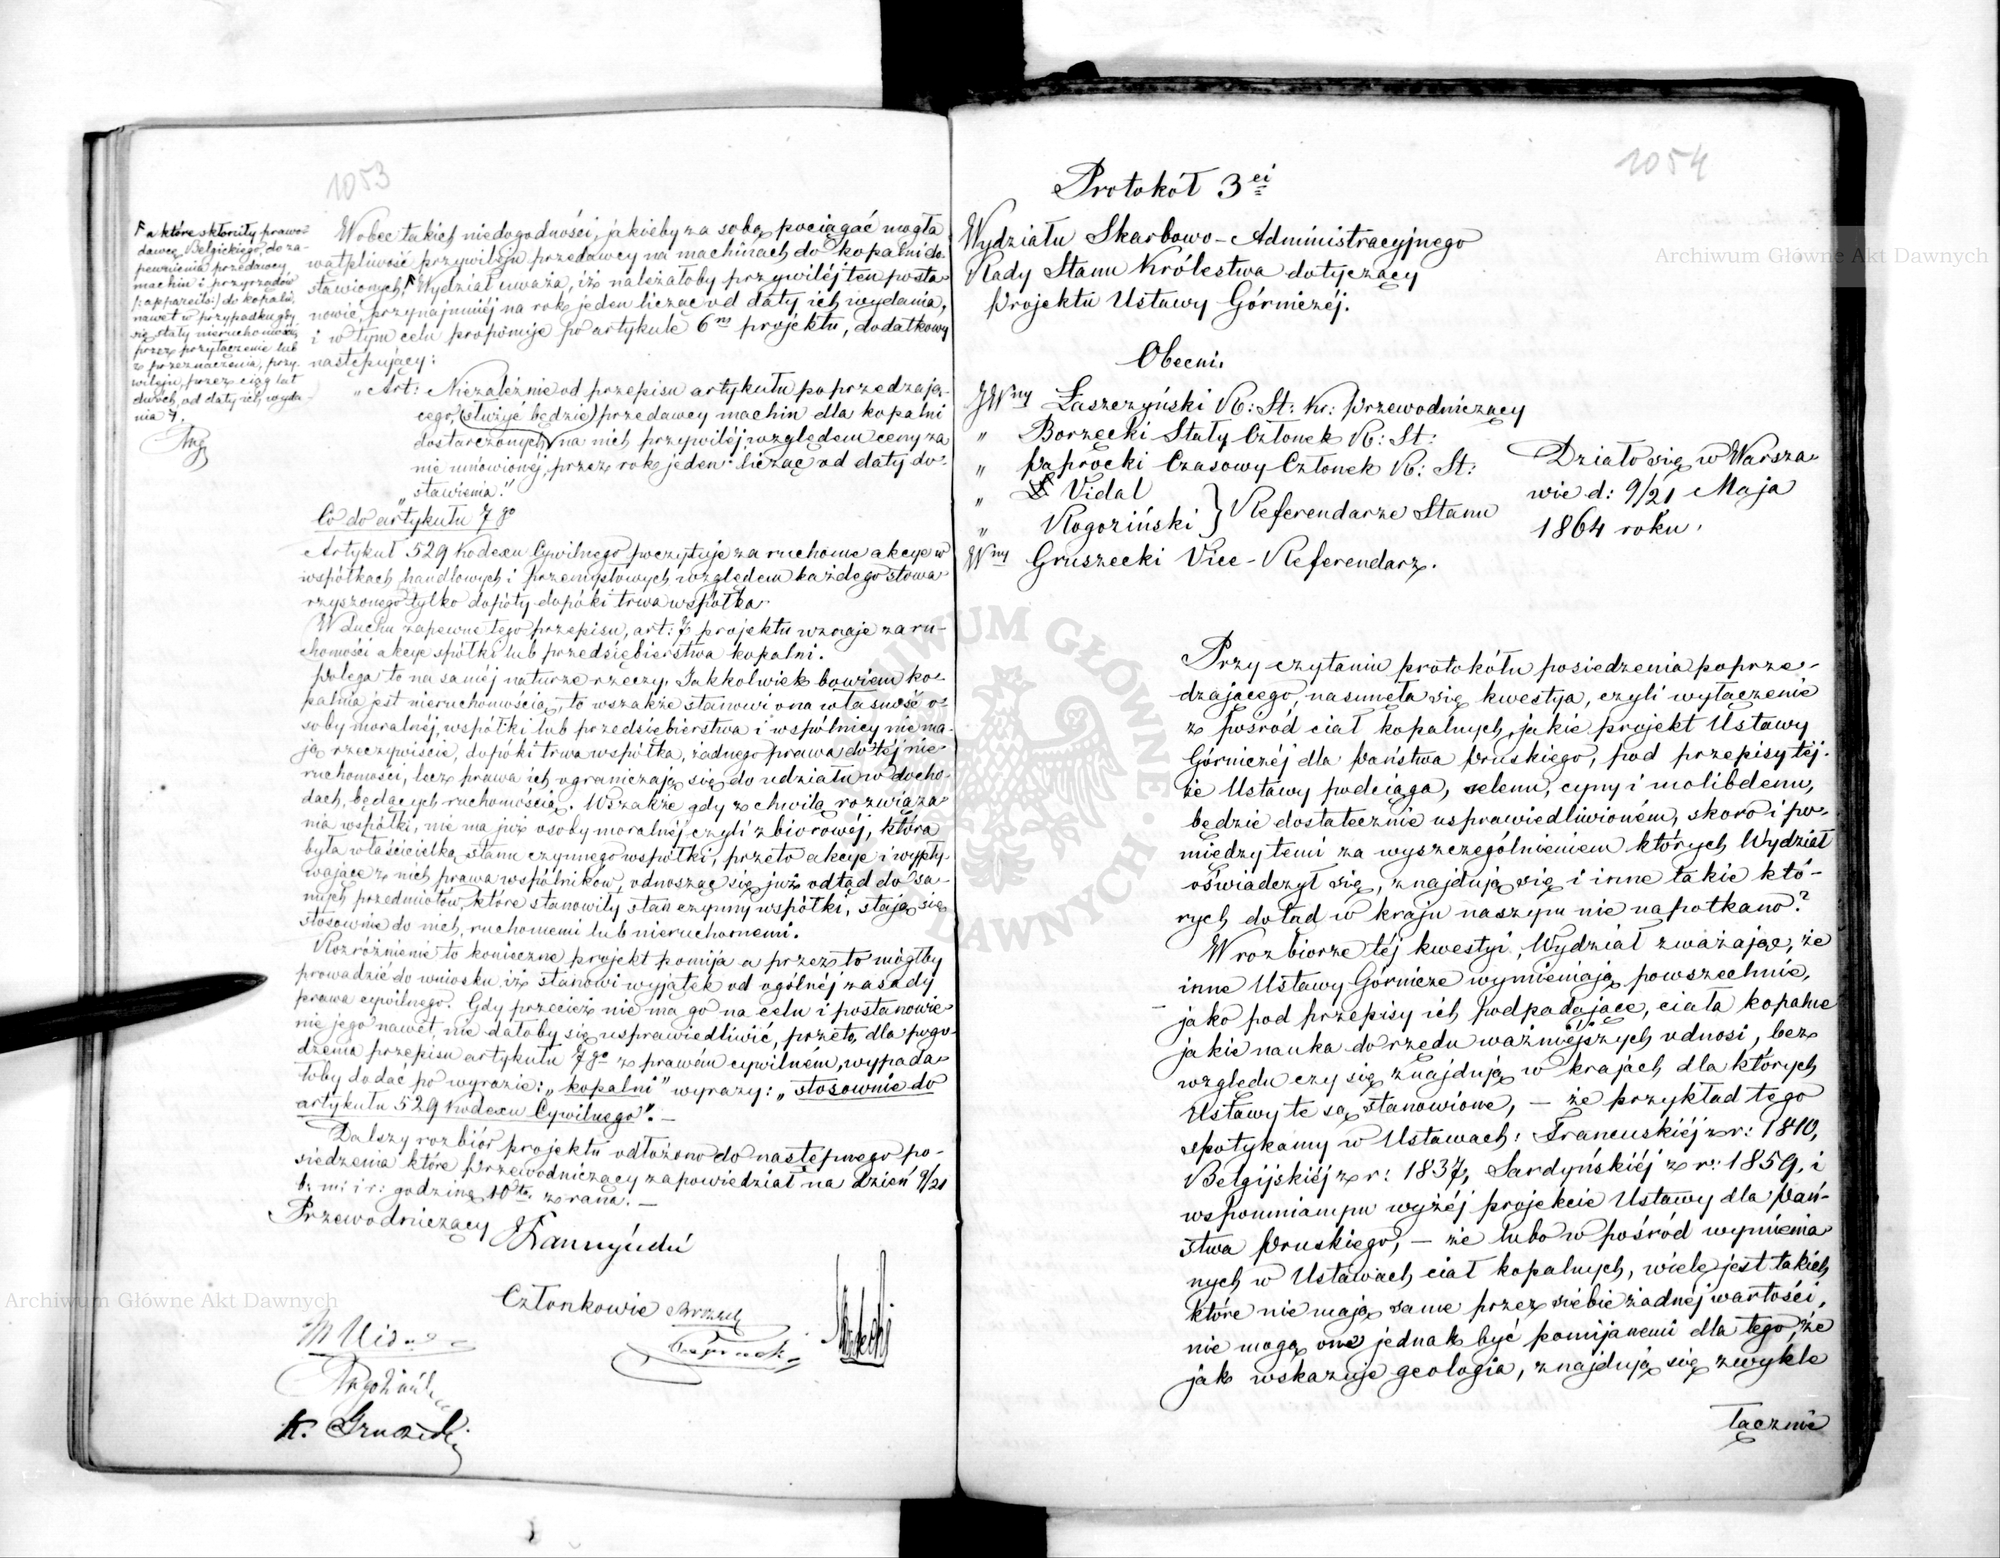 1053
Γ a które skłoniły prawo=
dawcę Belgickiego, do za-
pewnienia przedawcy
machin i przyrządów
(:appareils:) do kopalń,
nawet w przypadku gdy
się stały nieruchomością
przez przyłączenie lub
z przeznaczenia, przy-
wileju, przez ciąg lat
dwóch, od daty ich wyda-
nia 7.
Wobec takich niedogodności, jakieby za sobą pociągać mogła
wątpliwość przywileju przedawcy na machinach do kopalni do-
stawionych, Γ Wydział uważa, iż należałoby przywiléj ten posta-
nowić, przynajmniéj na rok jeden licząc od daty ich wydania,
i w tym celu proponuje po artykule 6m projektu, dodatkowy
następujący:
„Art: Niezależnie od przepisu artykułu poprzedzają-
cego, (służyć będzie) przedawcy machin dla kopalni
dostarczonych, na nich przywiléj względem ceny za
nie umówionéj, przez rok jeden licząc od daty do-
„stawienia."
Co do artykułu 7go
Artykuł 529 Kodexu Cywilnego poczytuje za ruchome akcye w
współkach handlowych i przemysłowych względem każdego stowa-
rzyszonego tylko dopóty dopóki trwa współka.
W duchu zapewne tego przepisu, art: 7 projektu uznaje za ru-
chomości akcye spółki lub przedsiębierstwa kopalni.
Polega to na saméj naturze rzeczy. Jakkolwiek bowiem ko-
palnia jest nieruchomością, to wszakże stanowi ona własność o-
soby moralnéj, współki lub przedsiębierstwa i wspólnicy nie ma-
ją rzeczywiście, dopóki trwa współka, żadnego prawa do téj nie-
ruchomości, lecz prawa ich ograniczają się do udziału w docho-
dach, będących ruchomością. Wszakże gdy z chwilą rozwiąza-
nia współki, nie ma już osoby moralnéj czyli zbiorowéj, która
była właścicielką stanu czynnego współki, przeto akcye i wypły-
wające z nich prawa wspólników, odnosząc się już odtąd do sa-
mych przedmiotów, które stanowiły stan czynny współki, stają się
stosownie do nich, ruchomemi lub nieruchomemi.
Rozróżnienie to konieczne projekt pomija a przez to mógłby
prowadzić do wniosku iż stanowi wyjątek od ogólnéj zasady
prawa cywilnego. Gdy przecież nie ma go na celu i postanowie-
nie jego nawet, nie dałoby się usprawiedliwić, przeto dla pogo-
dzenia przepisu artykułu 7go z prawem cywilném, wypada-
łoby dodać po wyrazie: „kopalni" wyrazy: „stosownie do
artykułu 529 Kodexu Cywilnego". —
Dalszy rozbiór projektu odłożono do następnego po-
siedzenia które Przewodniczący zapowiedział na dzień 9/21
b: m: i r: godzinę 10tą z rana. —
Przewodniczący
Członkowie
K. Gruszecki
1054
Protokół 3ei
Wydziału Skarbowo-Administracyjnego
Rady Stanu Królestwa dotyczący
Projektu Ustawy Górniczéj.
Obecni.
JWny Łaszczyński R: St: Kr: Przewodniczący
„ Borzęcki Stały Członek R: St:
„ Paprocki Czasowy Członek R: St:
„ Vidal
„ Rogoziński } Referendarze Stanu
Wny Gruszecki Vice-Referendarz.
Działo się w Warsza-
wie d: 9/21 Maja
1864 roku.
Przy czytaniu protokółu posiedzenia poprze-
dzającego, nasunęła się kwestya, czyli wyłączenie
z pośród ciał kopalnych, jakie projekt Ustawy
Górniczéj dla Państwa Pruskiego, pod przepisy téj-
że Ustawy podciąga, selenu, cyny i molibdenu,
będzie dostatecznie usprawiedliwioném, skoro i po-
między temi za wyszczególnieniem których Wydział
oświadczył się, znajdują się i inne takie któ-
rych dotąd w kraju naszym nie napotkano?
W rozbiorze téj kwestyi, Wydział zważając, że
inne Ustawy Górnicze wymieniają powszechnie,
jako pod przepisy ich podpadające, ciała kopalne
jakie nauka do rzędu ważniejszych odnosi, bez
względu czy się znajdują w krajach dla których
Ustawy te są stanowione, — że przykład tego
spotykamy w Ustawach: Francuskiéj z r: 1810,
Belgijskiéj z r: 1837, Sardyńskiéj z r: 1859, i
wspomnianym wyżéj projekcie Ustawy dla Pań-
stwa Pruskiego, — że lubo w pośród wymienia-
nych w Ustawach ciał kopalnych, wiele jest takich
które nie mają same przez siebie żadnéj wartości,
nie mogą one jednak być pomijanemi dla tego, że
jak wskazuje geologia, znajdują się zwykle
łącznie
Archiwum Główne Akt Dawnych
Archiwum Główne Akt Dawnych
ARCHIWUM GŁÓWNE AKT DAWNYCH